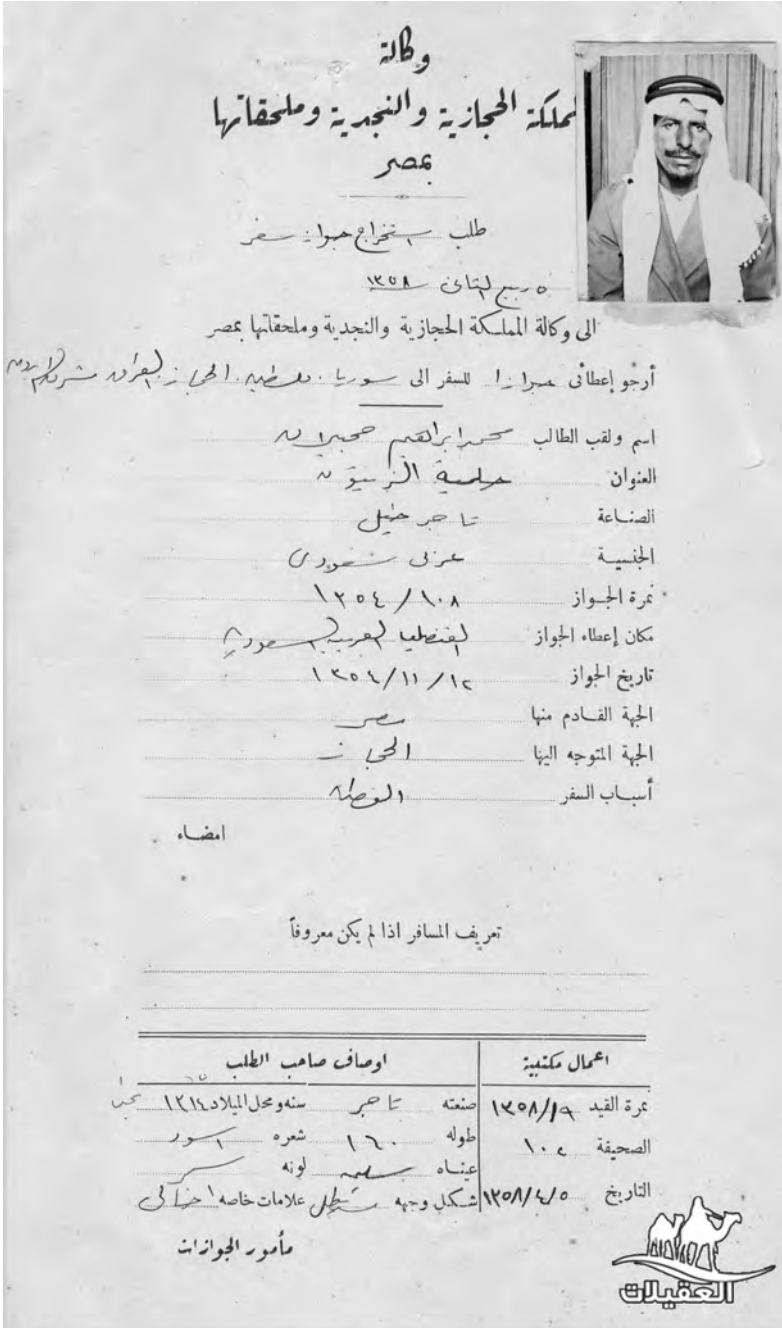 وكالة
المملكة الحجازية والنجدية وملحقاتها
بمصر
طلب استخراج جواز سفر
٥ ربيع الثاني ١٣٥٨
الى وكالة المملكة الحجازية والنجدية وملحقاتها بمصر
أرجو إعطائى جوازا للسفر الى سوريا . فلسطين . الحجاز . العراق
اسم ولقب الطالب محمد ابراهيم
العنوان حلمية الزيتون
الصناعة تاجر خيل
الجنسية عربى سعودى
نمرة الجواز ١٠٨/١٣٥٤
مكان إعطاء الجواز القنصليا العربيه السعوديه
تاريخ الجواز ١٢/١١/١٣٥٤
الجهة القادم منها مصر
الجهة المتوجه اليها الحجاز
أسباب السفر
امضاء
تعريف المسافر اذا لم يكن معروفاً
اعمال مكتبية
نمرة القيد ١٩/١٣٥٨
الصحيفة ١٠٢
التاريخ ٥/٤/١٣٥٨
اوصاف صاحب الطلب
صنعته تاجر سنه ومحل الميلاد ١٣١٤
طوله ١٦٠ شعره اسود
عيناه لونه
شكل وجهه علامات خاصه
مأمور الجوازات
العقيلات